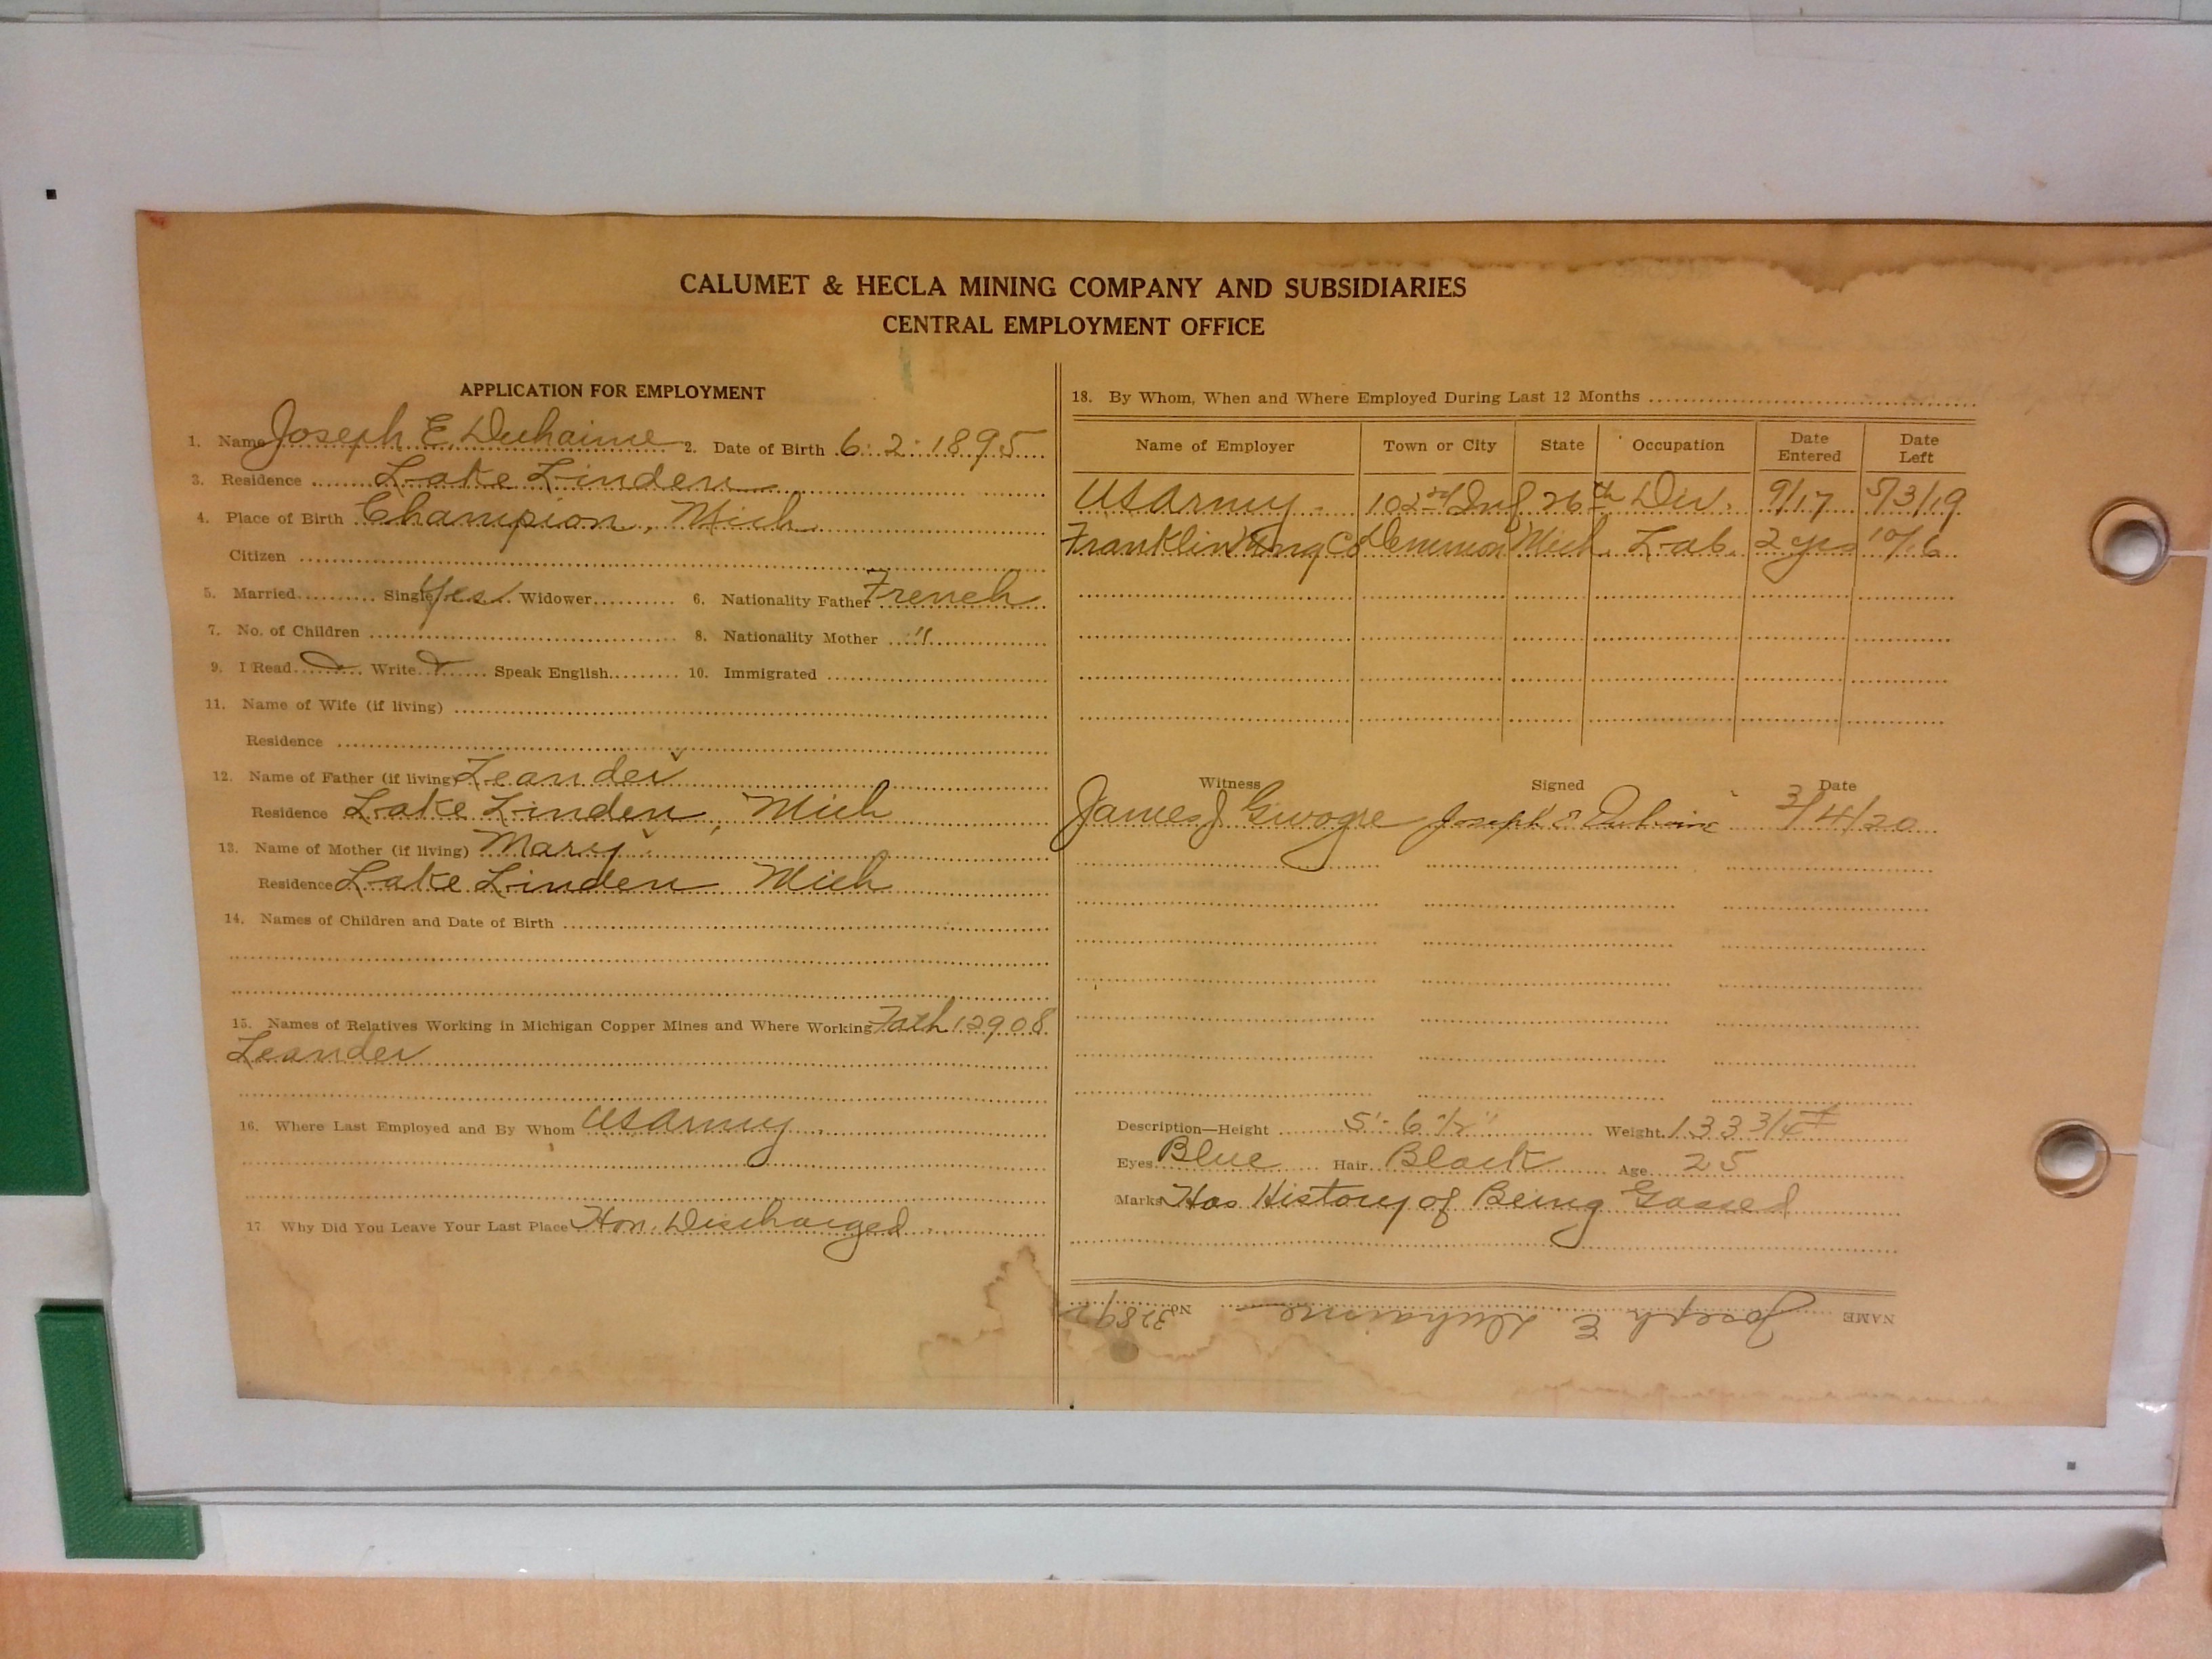 CALUMET & HECLA MINING COMPANY AND SUBSIDIARIES
CENTRAL EMPLOYMENT OFFICE
APPLICATION FOR EMPLOYMENT
1. Name Joseph E Duhaime 2. Date of Birth 6-2-1895
3. Residence Lake Linden
4. Place of Birth Champion, Mich.
Citizen
5. Married Single Yes Widower 6. Nationality Father French
7. No. of Children 8. Nationality Mother "
9. I Read Write Speak English 10. Immigrated
11. Name of Wife (if living)
Residence
12. Name of Father (if living) Leander
Residence Lake Linden, Mich
13. Name of Mother (if living) Mary
Residence Lake Linden Mich
14. Names of Children and Date of Birth
15. Names of Relatives Working in Michigan Copper Mines and Where Working Fath 12908
Leander
16. Where Last Employed and By Whom US Army
17 Why Did You Leave Your Last Place Hon. Discharged
18. By Whom, When and Where Employed During Last 12 Months
Name of Employer Town or City State Occupation Date Entered Date Left
US Army 102nd Inf 26th Div. 9/17 5/3/19
Franklin Mng Co Mich. Lab. 2 yrs
Witness Signed Date
James J Joseph E Duhaime 3/4/20
Description—Height 5'-6 1/2" Weight 133 3/4 #
Eyes Blue Hair Black Age 25
Marks Has History of Being Gassed
NAME Joseph E. Duhaime No.